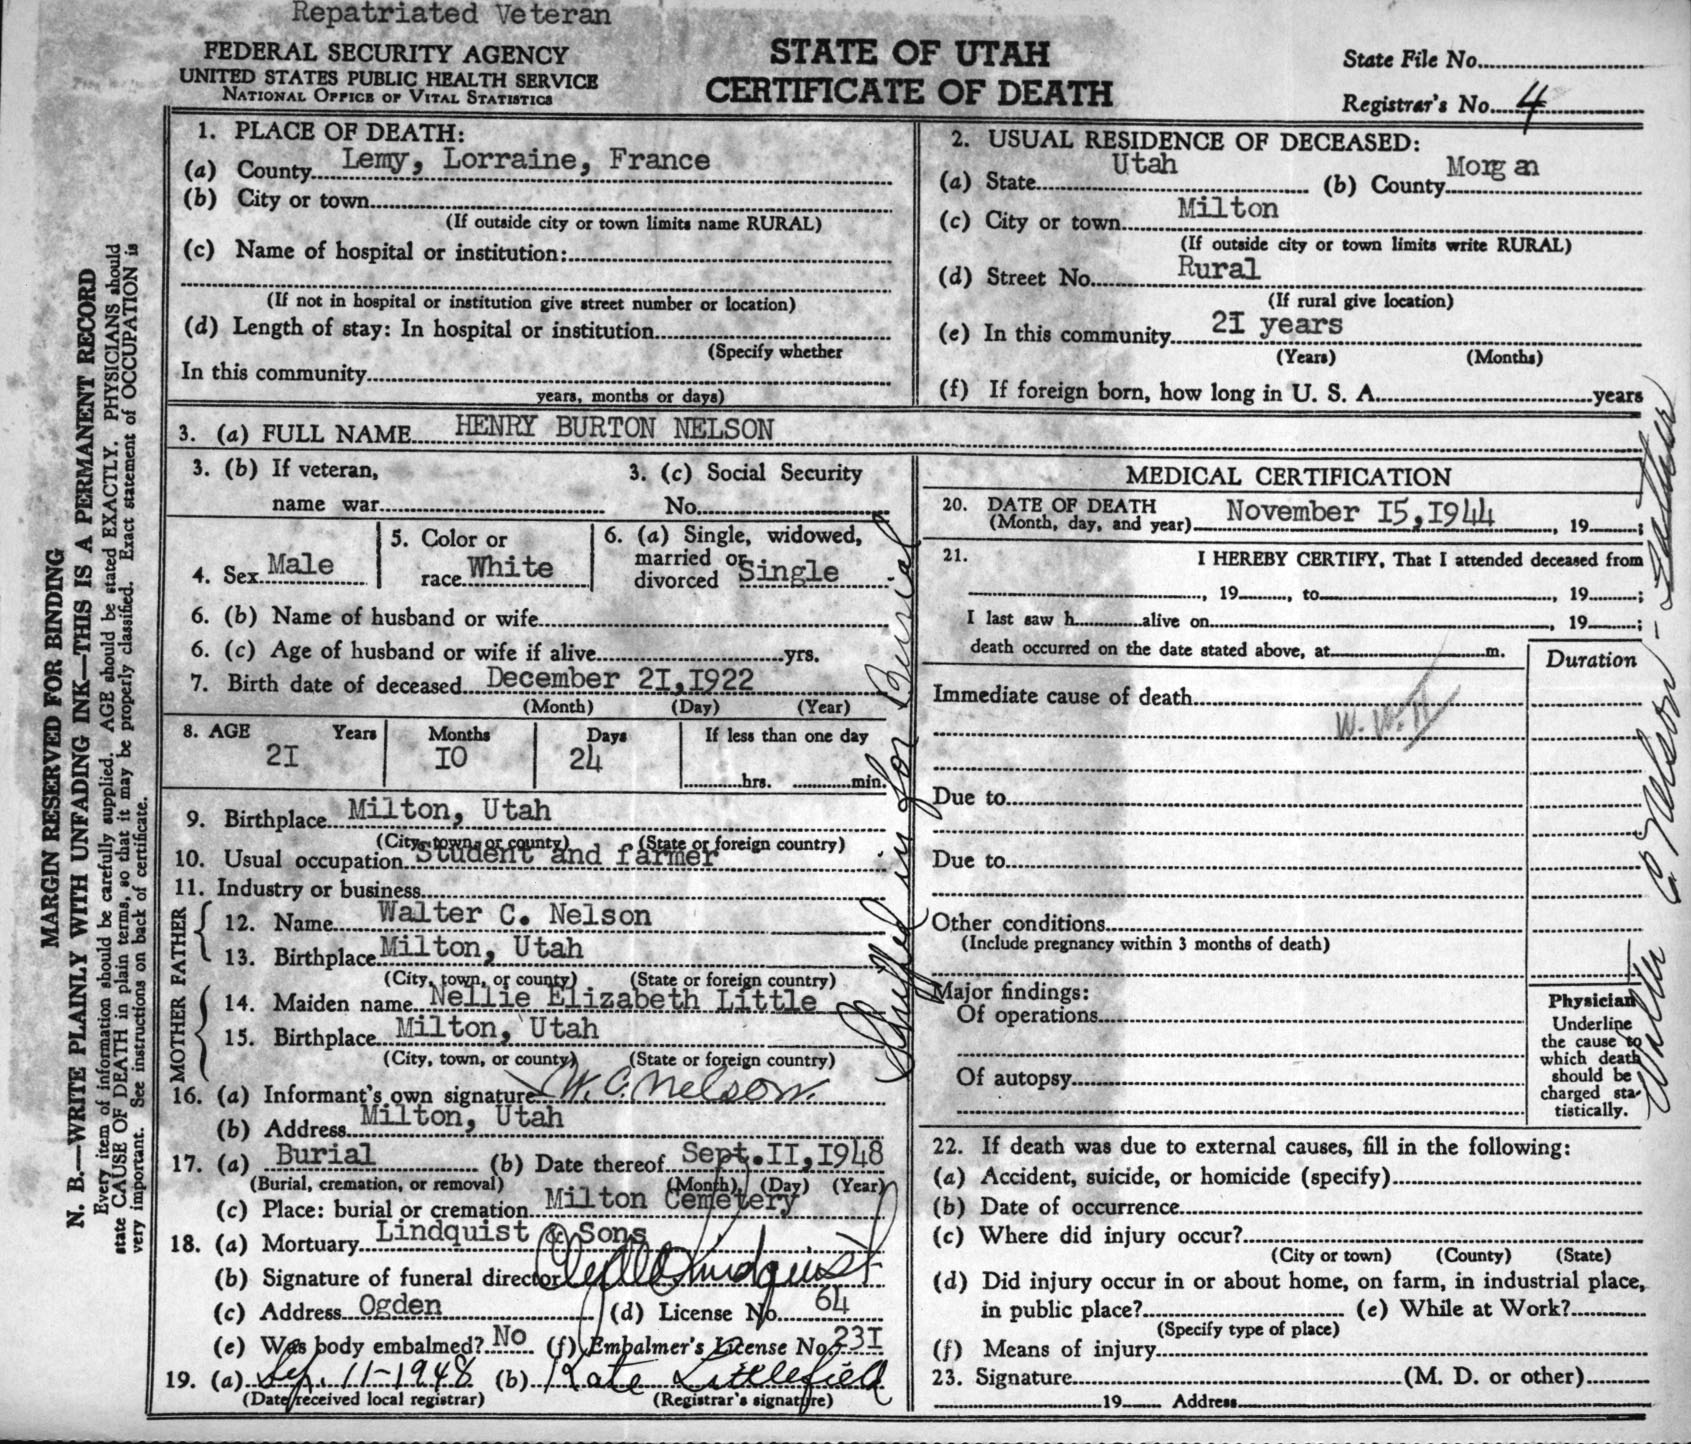 Repatriated Veteran
FEDERAL SECURITY AGENCY
UNITED STATES PUBLIC HEALTH SERVICE
NATIONAL OFFICE OF VITAL STATISTICS
STATE OF UTAH
CERTIFICATE OF DEATH
State File No.
Registrar's No. 4
MARGIN RESERVED FOR BINDING
N. B.—WRITE PLAINLY WITH UNFADING INK—THIS IS A PERMANENT RECORD
Every item of information should be carefully supplied. AGE should be stated EXACTLY. PHYSICIANS should
state CAUSE OF DEATH in plain terms, so that it may be properly classified. Exact statement of OCCUPATION is
very important. See instructions on back of certificate.
1. PLACE OF DEATH:
(a) County Lemy, Lorraine, France
(b) City or town
(If outside city or town limits name RURAL)
(c) Name of hospital or institution:
(If not in hospital or institution give street number or location)
(d) Length of stay: In hospital or institution
(Specify whether
In this community
years, months or days)
2. USUAL RESIDENCE OF DECEASED:
(a) State Utah (b) County Morgan
(c) City or town Milton
(If outside city or town limits write RURAL)
(d) Street No. Rural
(If rural give location)
(e) In this community 2I years
(Years) (Months)
(f) If foreign born, how long in U. S. A. years
3. (a) FULL NAME HENRY BURTON NELSON
3. (b) If veteran, 3. (c) Social Security
name war No.
4. Sex Male
5. Color or
race White
6. (a) Single, widowed,
married or
divorced Single
6. (b) Name of husband or wife
6. (c) Age of husband or wife if alive yrs.
7. Birth date of deceased December 2I,I922
(Month) (Day) (Year)
8. AGE Years Months Days If less than one day
2I IO 24 hrs. min.
9. Birthplace Milton, Utah
(City, town, or county) (State or foreign country)
10. Usual occupation Student and farmer
11. Industry or business
FATHER
12. Name Walter C. Nelson
13. Birthplace Milton, Utah
(City, town, or county) (State or foreign country)
MOTHER
14. Maiden name Nellie Elizabeth Little
15. Birthplace Milton, Utah
(City, town, or county) (State or foreign country)
16. (a) Informant's own signature W. C. Nelson.
(b) Address Milton, Utah
17. (a) Burial (b) Date thereof Sept.II,I948
(Burial, cremation, or removal) (Month) (Day) (Year)
(c) Place: burial or cremation Milton Cemetery
18. (a) Mortuary Lindquist & Sons
(b) Signature of funeral director Lindquist
(c) Address Ogden (d) License No. 64
(e) Was body embalmed? No (f) Embalmer's License No. 23I
19. (a) Sep. 11-1948 (b) Kate Littlefield
(Date received local registrar) (Registrar's signature)
Shipped in for Burial
MEDICAL CERTIFICATION
20. DATE OF DEATH
(Month, day, and year) November I5,I944, 19 ;
21. I HEREBY CERTIFY, That I attended deceased from
, 19 , to , 19 ;
I last saw h alive on , 19 ;
death occurred on the date stated above, at m.
Duration
Immediate cause of death
W. W. II
Due to
Due to
Other conditions
(Include pregnancy within 3 months of death)
Major findings:
Of operations
Of autopsy
Physician
Underline
the cause to
which death
should be
charged sta-
tistically.
22. If death was due to external causes, fill in the following:
(a) Accident, suicide, or homicide (specify)
(b) Date of occurrence
(c) Where did injury occur?
(City or town) (County) (State)
(d) Did injury occur in or about home, on farm, in industrial place,
in public place? (e) While at Work?
(Specify type of place)
(f) Means of injury
23. Signature (M. D. or other)
19 Address
Walter C Nelson - Father